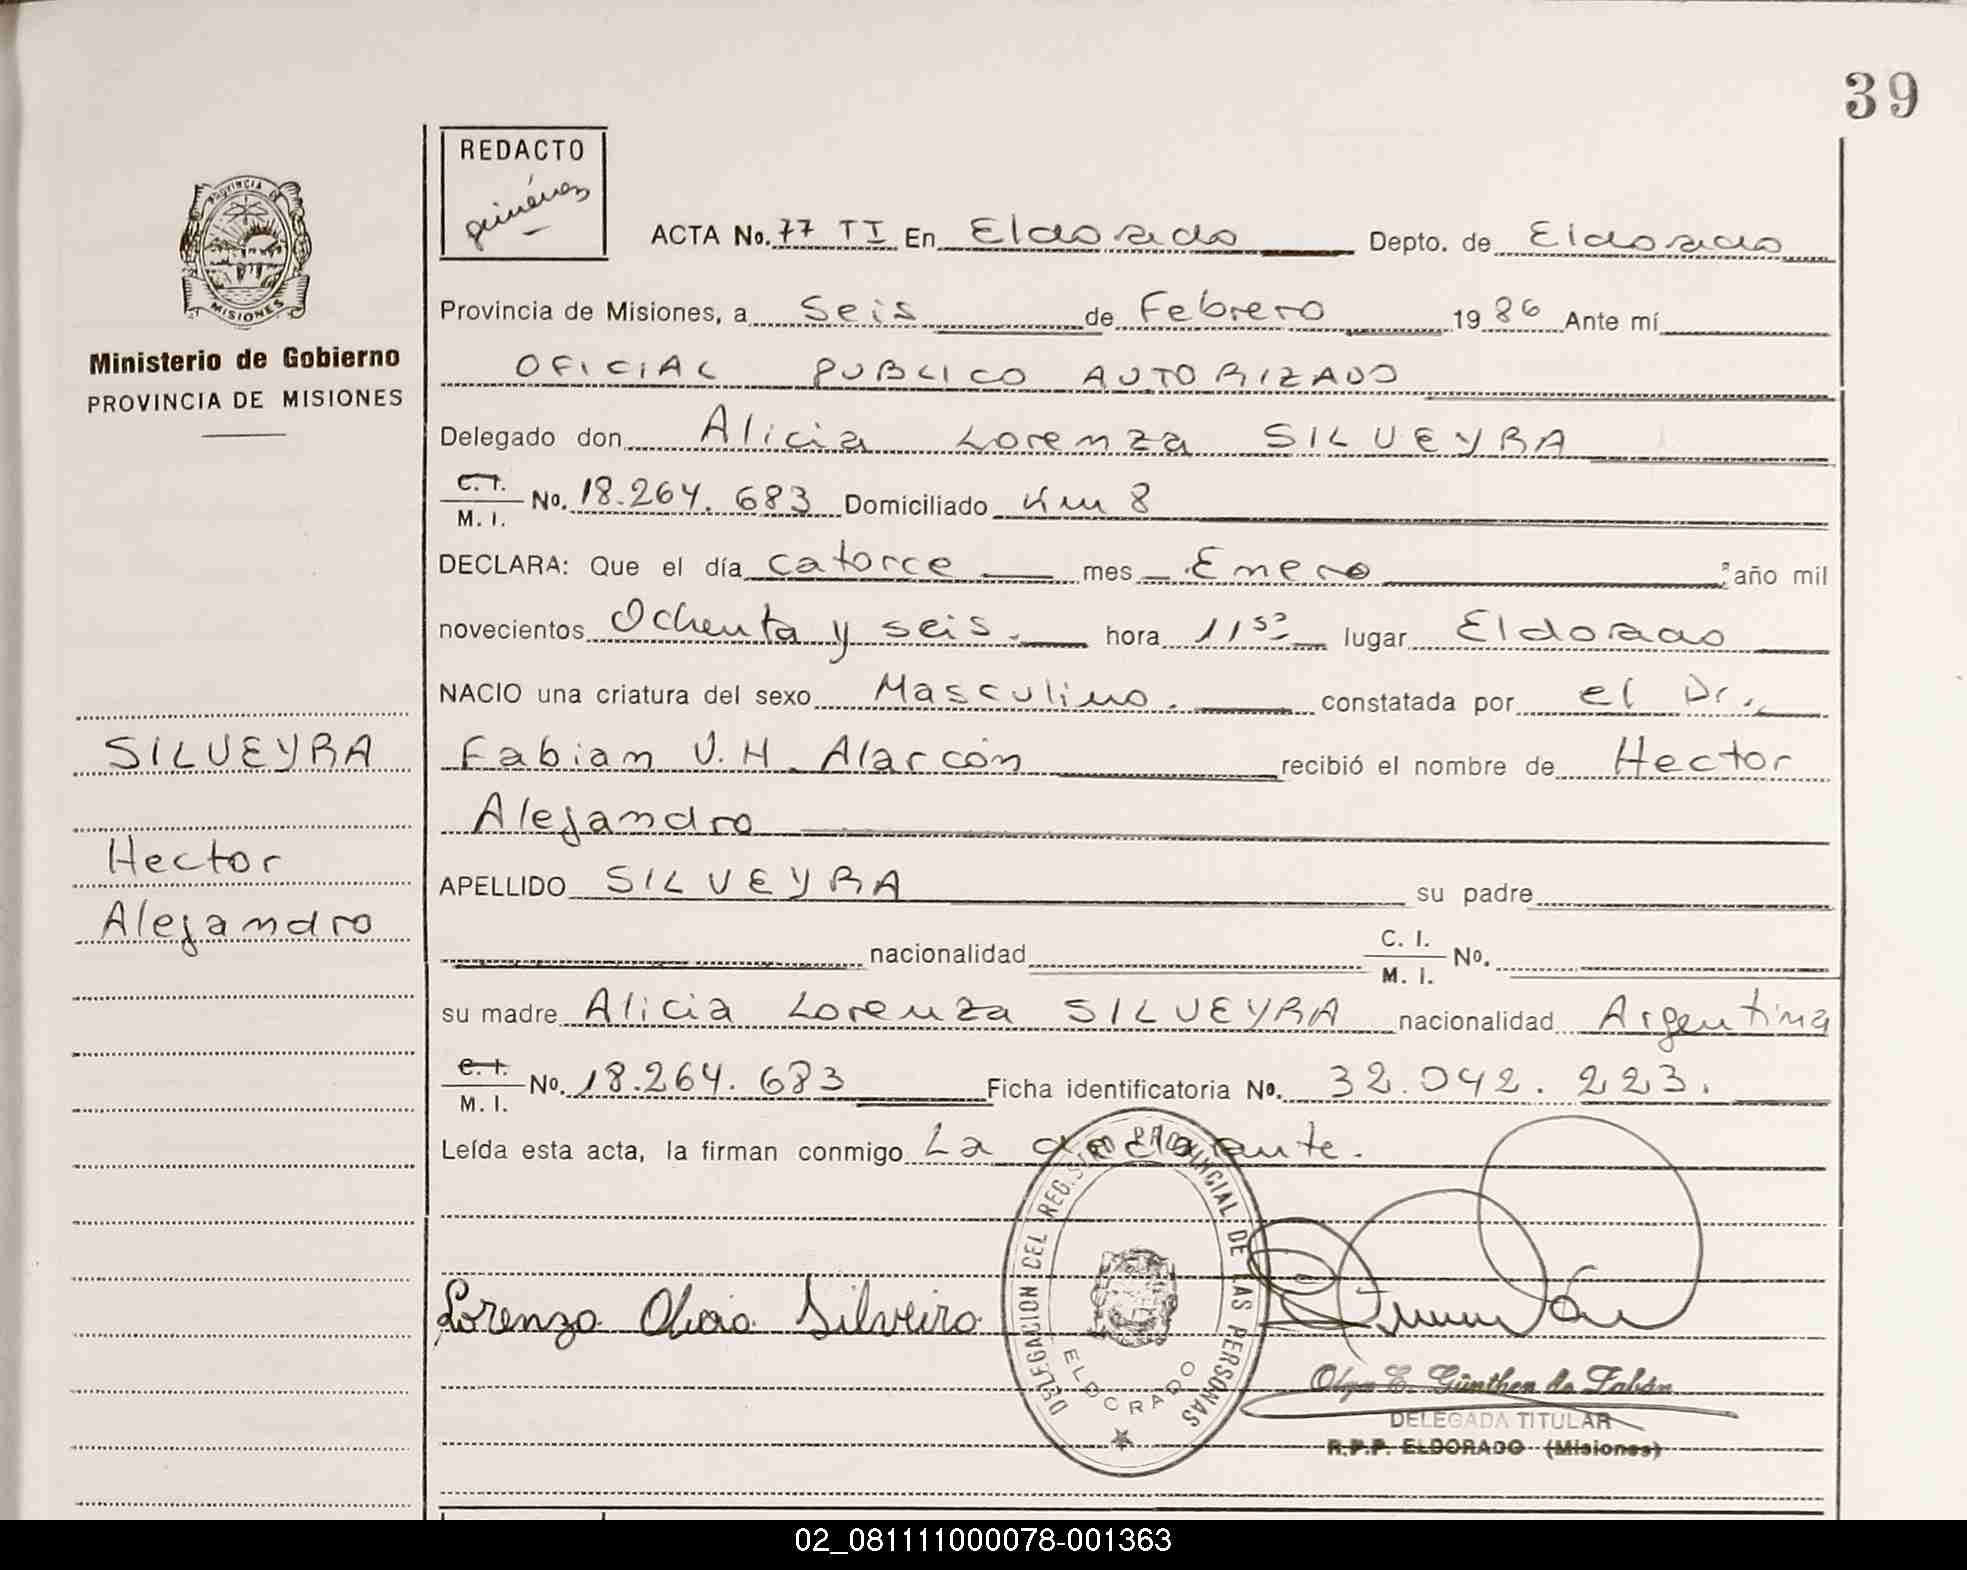 39
REDACTO
PROVINCIA DE
MISIONES
Ministerio de Gobierno
PROVINCIA DE MISIONES
ACTA No. 77 TI En Eldorado Depto. de Eldorado
Provincia de Misiones, a Seis de Febrero 1986 Ante mí
OFICIAL PUBLICO AUTORIZADO
Delegado don Alicia Lorenza SILVEYRA
C. I.
M. I. No. 18.264.683 Domiciliado Km 8
DECLARA: Que el día catorce mes Enero año mil
novecientos Ochenta y seis. hora 11 50 lugar Eldorado
NACIO una criatura del sexo Masculino. constatada por el Dr.
Fabian V.H. Alarcón recibió el nombre de Hector
Alejandro
APELLIDO SILVEYRA su padre
nacionalidad C. I.
M. I. No.
su madre Alicia Lorenza SILVEYRA nacionalidad Argentina
C. I.
M. I. No. 18.264.683 Ficha identificatoria No. 32.042.223.
Leída esta acta, la firman conmigo La declarante.
SILVEYRA
Hector
Alejandro
Lorenza Alicia Silveira
DELEGACION DEL REG.STRO PROVINCIAL DE LAS PERSONAS
ELDORADO
Olga E. Günther de Fabán
DELEGADA TITULAR
R.P.P. ELDORADO (Misiones)
02_081111000078-001363